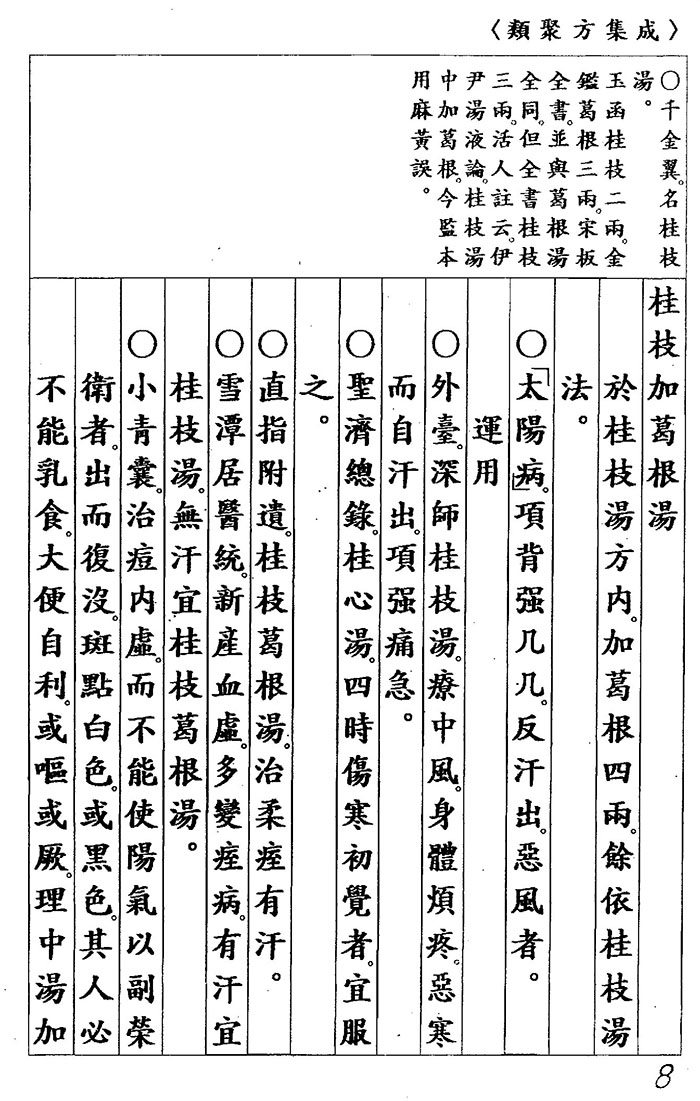 〈類聚方集成〉
〇千金翼。名桂枝
湯。
玉函桂枝二兩。金
鑑葛根三兩。宋板
全書。並與葛根湯
全同。但全書桂枝
三兩。活人註云。伊
尹湯液論。桂枝湯
中加葛根。今監本
用麻黃誤。
桂枝加葛根湯
於桂枝湯方内。加葛根四兩。餘依桂枝湯
法。
〇「太陽病」。項背强几几。反汗出。惡風者。
運用
〇外臺。深師桂枝湯。療中風。身體煩疼。惡寒
而自汗出。項强痛急。
〇聖濟總錄。桂心湯。四時傷寒初覺者。宜服
之。
〇直指附遺。桂枝葛根湯。治柔痓有汗。
〇雪潭居醫統。新産血虛。多變痓病。有汗宜
桂枝湯。無汗宜桂枝葛根湯。
〇小青囊。治痘内虛。而不能使陽氣以副榮
衛者。出而復沒。斑點白色。或黑色。其人必
不能乳食。大便自利。或嘔或厥。理中湯加
8